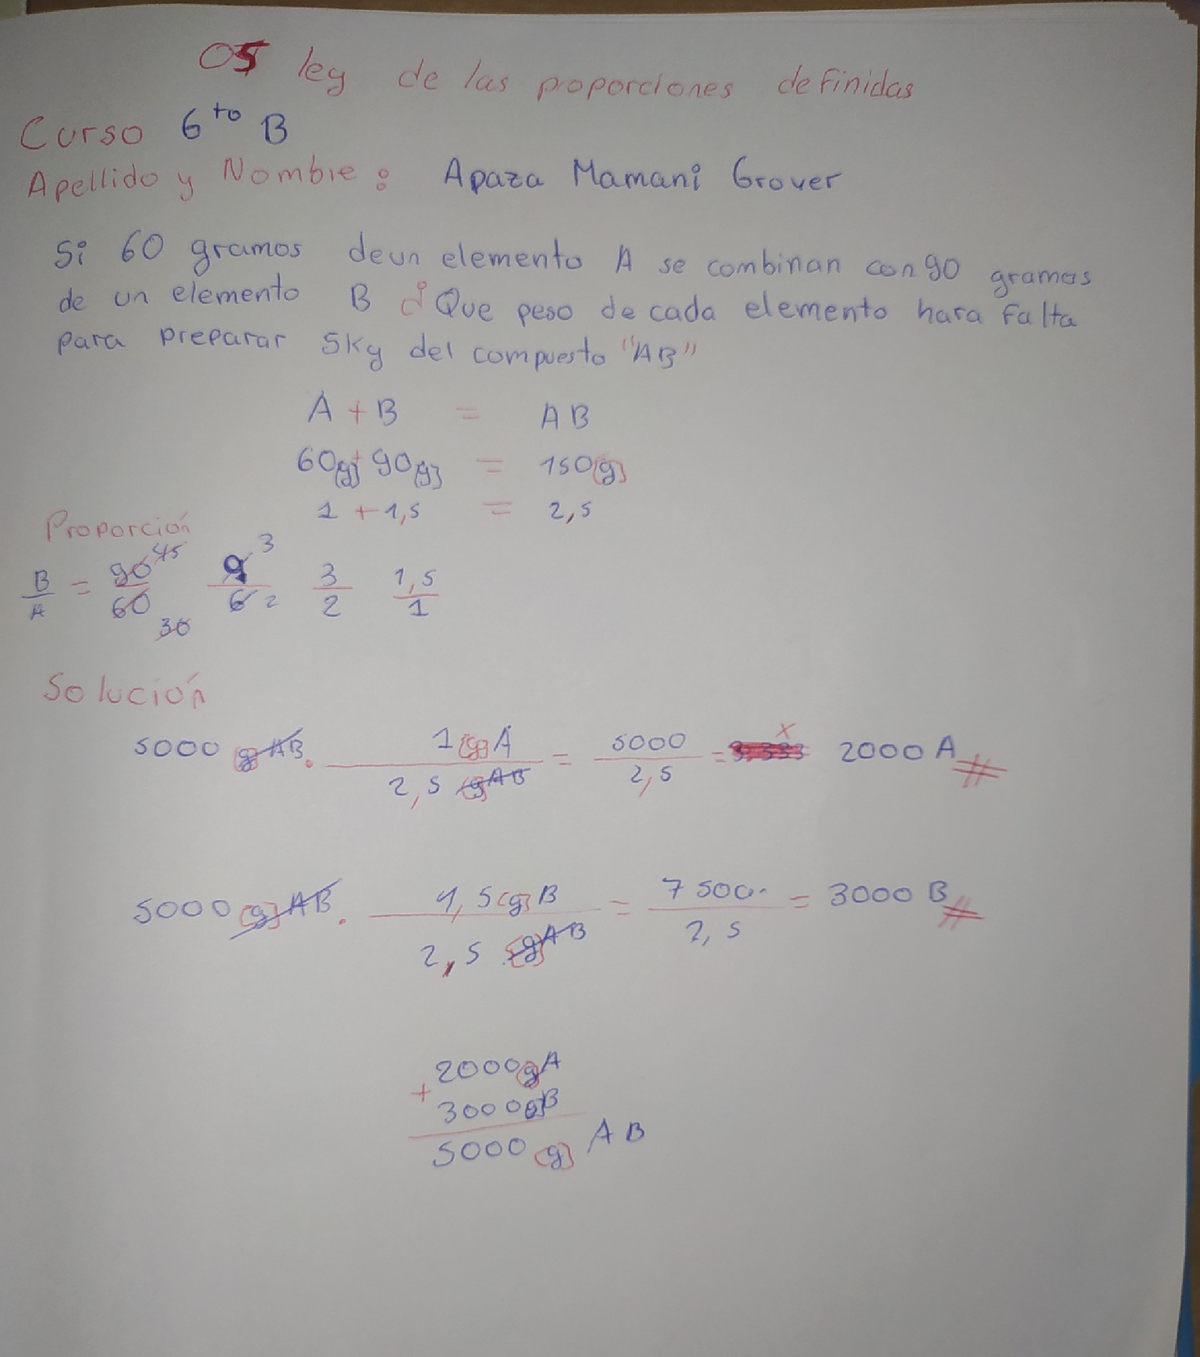 05 ley de las proporciones definidas
Curso 6to B
Apellido y Nombre: Apaza Mamani Grover
Si 60 gramos deun elemento A se combinan con 90 gramos
de un elemento B ¿Que peso de cada elemento hara Falta
para preparar 5kg del compuesto "AB"
A + B = AB
60[g] + 90[g] = 150[g]
1 + 1,5 = 2,5
Proporción
B/A = 90/60 45/30 9/6 3/2 3/2 1,5/1
Solución
5000 [g] AB . 1[g] A / 2,5 [g] AB = 5000 / 2,5 = x 2000 A
5000 [g] AB . 1,5[g] B / 2,5 [g] AB = 7500 / 2,5 = 3000 B
2000[g] A
+ 3000[g] B
5000 [g] AB